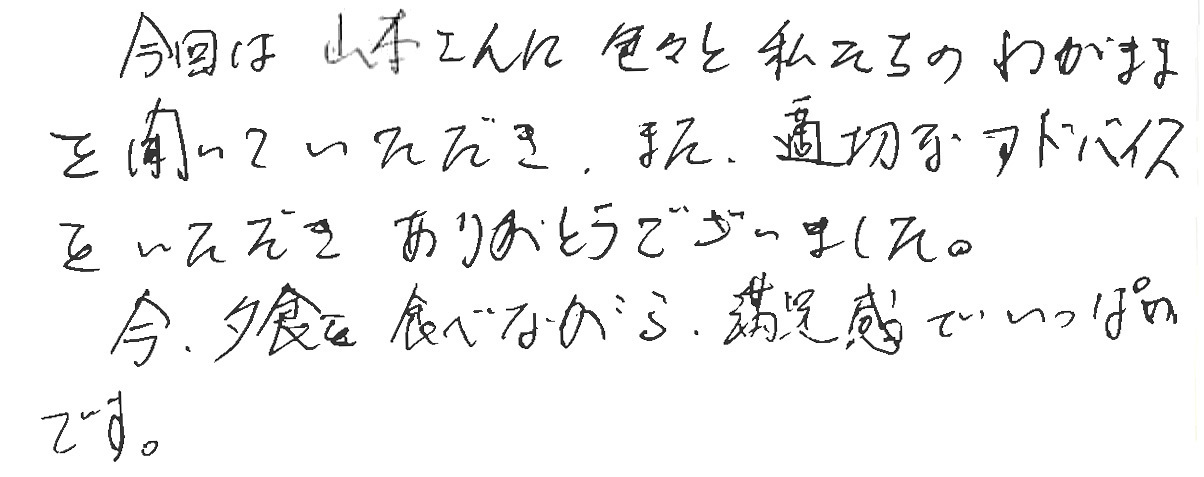 今回は山本さんに色々と私たちのわがまま
を聞いていただき、また、適切なアドバイス
をいただきありがとうございました。
今、夕食を食べながら、満足感でいっぱい
です。